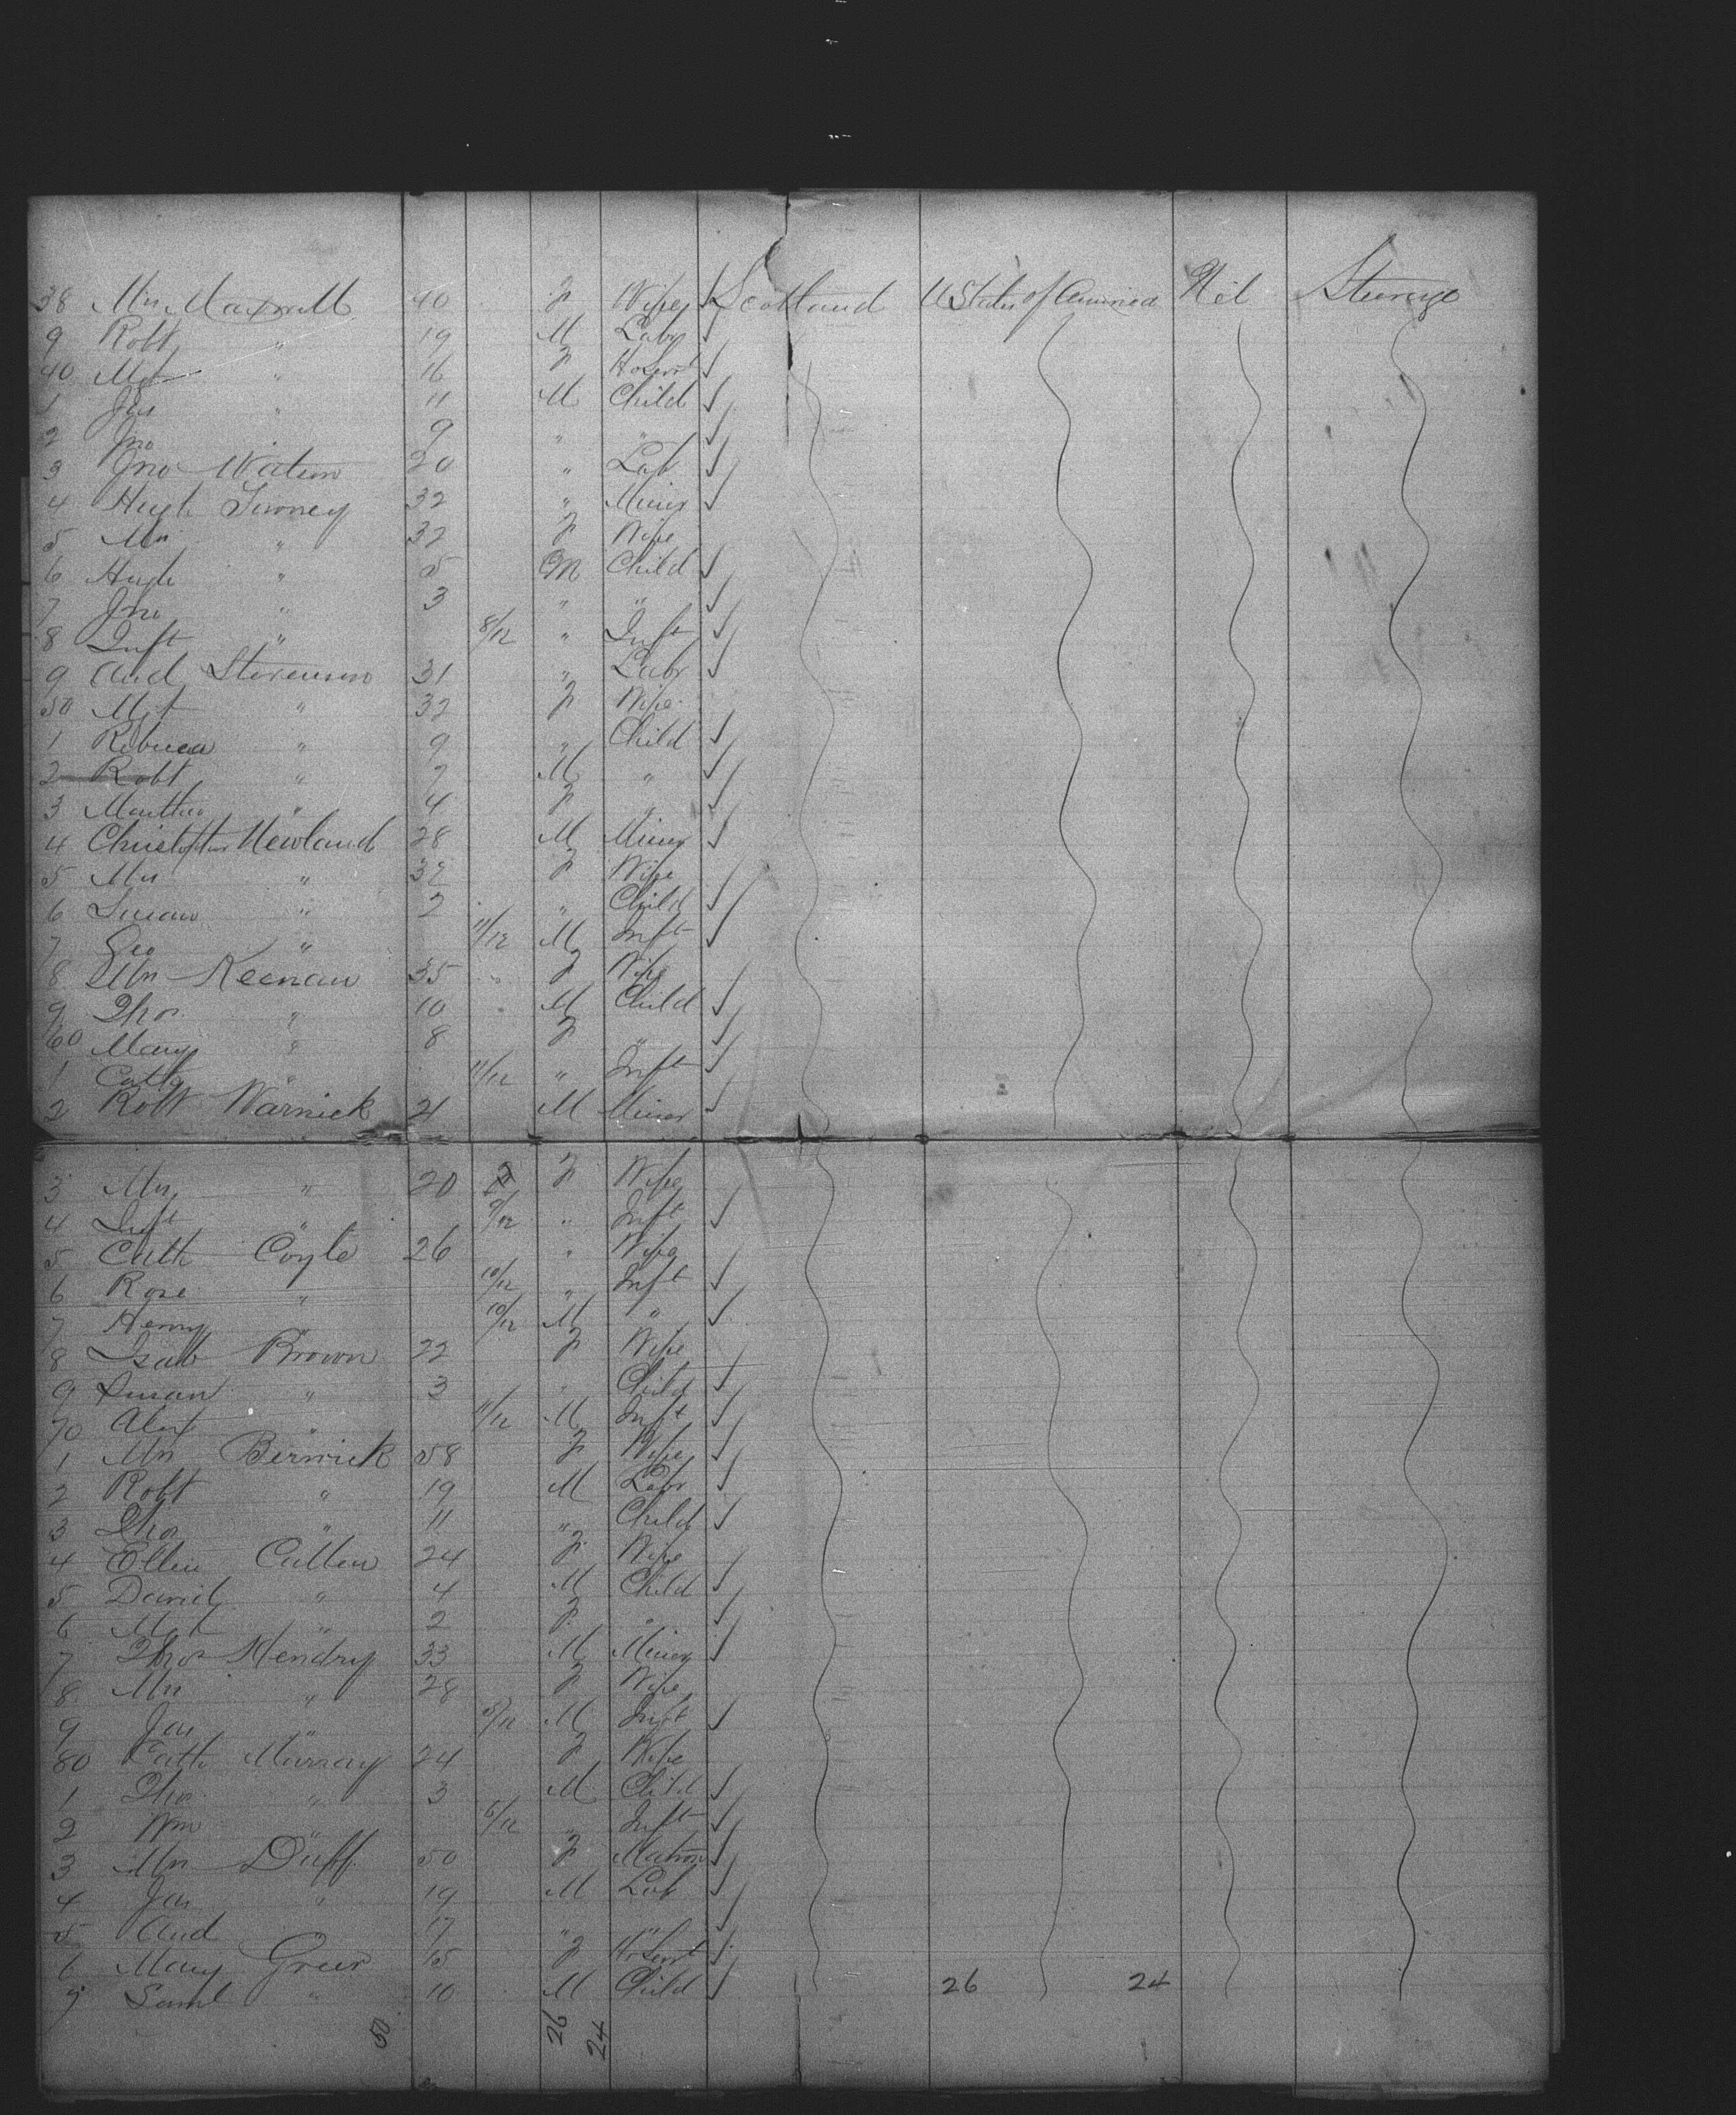 38 Mrs Maxwell 40 F Wife Scotland U States of America Nil Steerage
9 Robt " 19 M Labr
40 Mgt " 16 F Ho Servt
1 Jas " 11 M Child
2 Jno 9 " "
3 Jno Watson 20 " Labr
4 Hugh Tierney 32 " Miner
5 Mrs " 32 F Wife
6 Hugh " 5 M Child
7 Jno " 3 " "
8 Inft " 8/12 " Inft
9 And Stevenson 31 " Labr
50 Mgt " 32 F Wife
1 Rebecca " 9 " Child
2 Robt " 7 M "
3 Martha " 4 F "
4 Christopher Newland 28 M Miner
5 Mrs " 32 F Wife
6 Susan " 2 " Child
7 Geo " 11/12 M Inft
8 Mrs Keenan 35 F Wife
9 Thos " 10 M Child
60 Mary " 8 F "
1 Cath " 11/12 " Inft
2 Robt Warnick 21 M Miner
3 Mrs " 20 F Wife
4 Inft " 9/12 " Inft
5 Cath Coyle 26 " Wife
6 Rose " 10/12 " Inft
7 Henry " 10/12 M "
8 Isab Brown 22 F Wife
9 Susan " 3 " Child
70 Alex " 11/12 M Inft
1 Mrs Berwick 58 F Wife
2 Robt " 19 M Labr
3 Thos " 11 " Child
4 Ellen Cullen 24 F Wife
5 David " 4 M Child
6 Mgt " 2 F "
7 Thos Hendry 33 M Miner
8 Mrs " 28 F Wife
9 Jas " M Inft
80 Cath Murray 24 F Wife
1 Thos " 3 M Child
2 Wm " 6/12 " Inft
3 Mrs Duff 50 F Matron
4 Jas " 19 M Lab
5 And " 17 " "
6 Mary Greer 15 F Ho Servt
7 Saml " 10 M Child 26 24
50 26 24